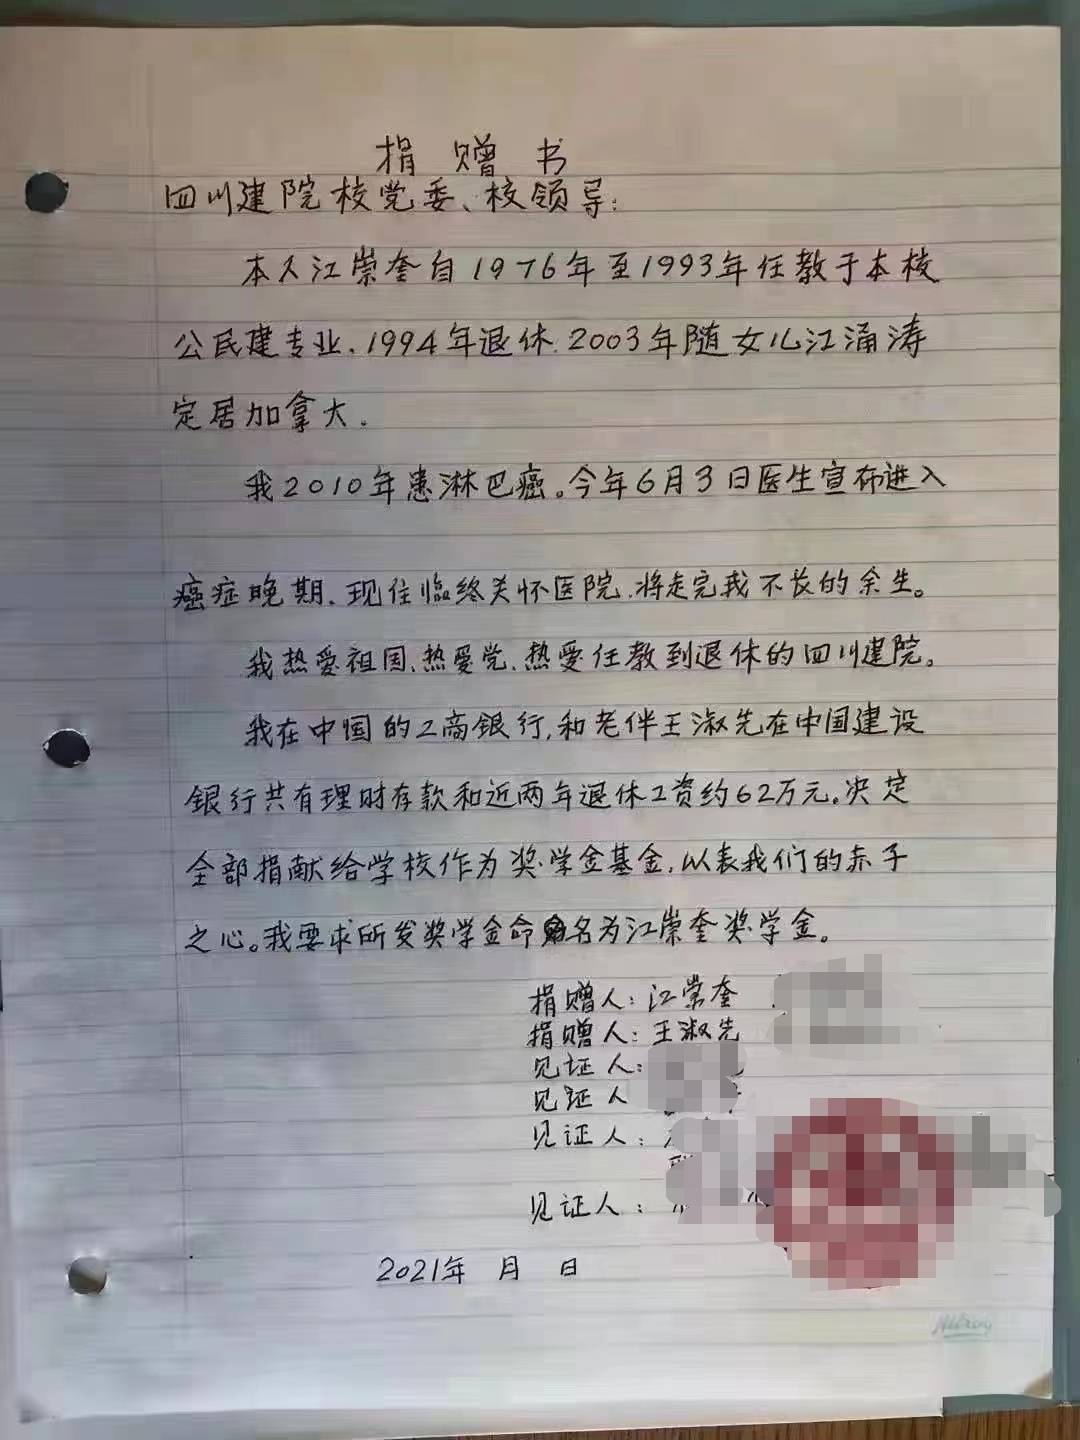 捐赠书
四川建院校党委、校领导:
本人江崇奎自1976年至1993年任教于本校
公民建专业、1994年退休.2003年随女儿江涌涛
定居加拿大.
我2010年患淋巴癌。今年6月3日医生宣布进入
癌症晚期、现住临终关怀医院.将走完我不长的余生。
我热爱祖国、热爱党、热爱任教到退休的四川建院。
我在中国的工商银行,和老伴王淑先在中国建设
银行共有理财存款和近两年退休工资约62万元。决定
全部捐献给学校作为奖学金基金,以表我们的赤子
之心。我要求所发奖学金命名为江崇奎奖学金。
捐赠人:江崇奎
捐赠人:王淑先
见证人:
见证人
见证人:
见证人:
2021年 月 日
Hilroy